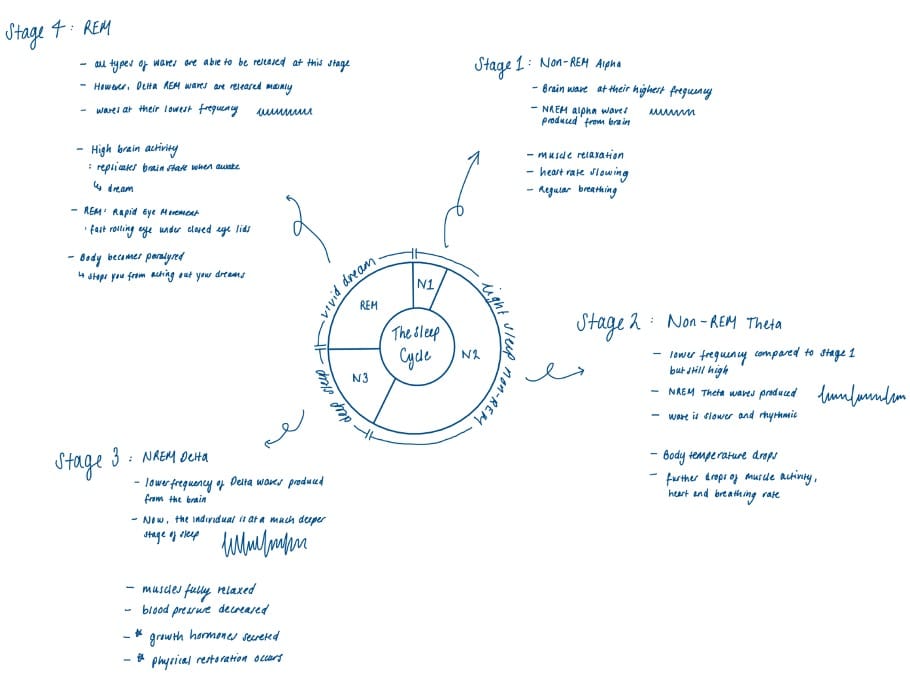 Stage 4 : REM
- all types of waves are able to be released at this stage
- However, Delta REM waves are released mainly
- waves at their lowest frequency
- High brain activity
: replicates brain state when awake
↳ dream
- REM: Rapid Eye Movement
· fast rolling eye under closed eye lids
- Body becomes paralysed
↳ stops you from acting out your dreams
Stage 1 : Non-REM Alpha
- Brain wave at their highest frequency
- NREM alpha waves
produced from brain
- muscle relaxation
- heart rate slowing
- Regular breathing
vivid dream
light sleep non-REM
deep sleep
N1
REM
N2
N3
The Sleep
Cycle
Stage 2 : Non-REM Theta
- lower frequency compared to stage 1
but still high
- NREM Theta waves produced
- wave is slower and rhythmic
- Body temperature drops
- further drops of muscle activity,
heart and breathing rate
Stage 3 : NREM Delta
- lower frequency of Delta waves produced
from the brain
- Now, the individual is at a much deeper
stage of sleep
- muscles fully relaxed
- blood pressure decreased
- * growth hormones secreted
- * physical restoration occurs